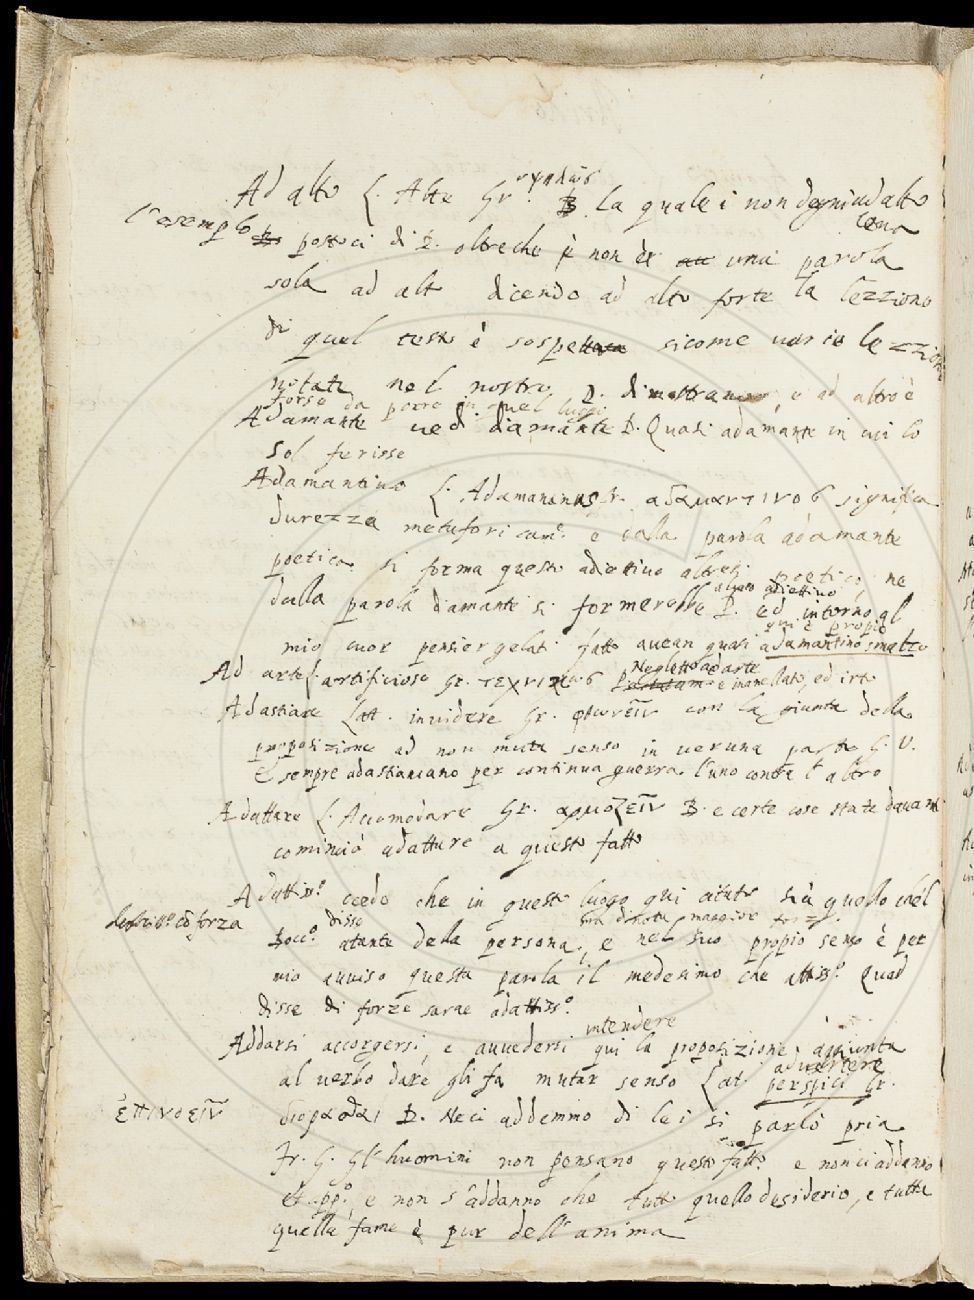 Ad alto L. Alte Gr. ὑψηλῶς B. la quale i non degniud alto
l'esempio leua
postoci di D. oltreche è non è una parola
sola ad alt dicendo ad alto forte la lezzione
di quel testo è sospetta sicome uarie lezzioni
notate nel nostro D. dimostrano, e ad altro è
forse da porre in quel luogo
Adamante uedi diamante D. Quasi adamante in cui lo
sol ferisse
Adamantino L. Adamantinus Gr. αδαμαντινος significa
durezza metaforicam.e e dalla parola adamante
poetica si forma questo adiettiuo altresi poetico, ne
dalla parola diamante si formerebbe alcuno adiettiuo D. ed intorno al
qui è propio
mio cuor pensier gelati fatto auean quasi adamantino smalto
Ad arte L. artificiose Gr. τεχνικῶς Negletto ad arte e inanellato, ed irto
Adastiare Lat. inuidere Gr. φθονεῖν con la giunta della
proposizione ad non muta senso in ueruna parte G. V.
E sempre adastiauano per continua guerra l'uno contra l'altro
Adattare L. Accomodare Gr. αρμοζεῖν B. e certe cose state dauanti
cominciò adattare a questo fatto
Adattiss.o credo che in questo luogo qui citato sia quello che'l
con forza disse
Bocc.o atante della persona, e nel suo propio senso è per
mio auuiso questa parola il medesimo che attiss.o Quad
disse di forze sarae adattiss.o
intendere
Addarsi accorgersi, e auuedersi qui la proposizione aggiunta
al uerbo dare gli fa mutar senso Lat. aduertere perspici Gr.
ἐπινοεῖν
διορασθαι B. Ne ci addemmo di lei si parlò pria
Fr. G. Gl'huomini non pensano questo fatto e non ci addanno
et app.o e non s'addanno che tutto quello desiderio, e tutta
quella fame è pur dell'anima